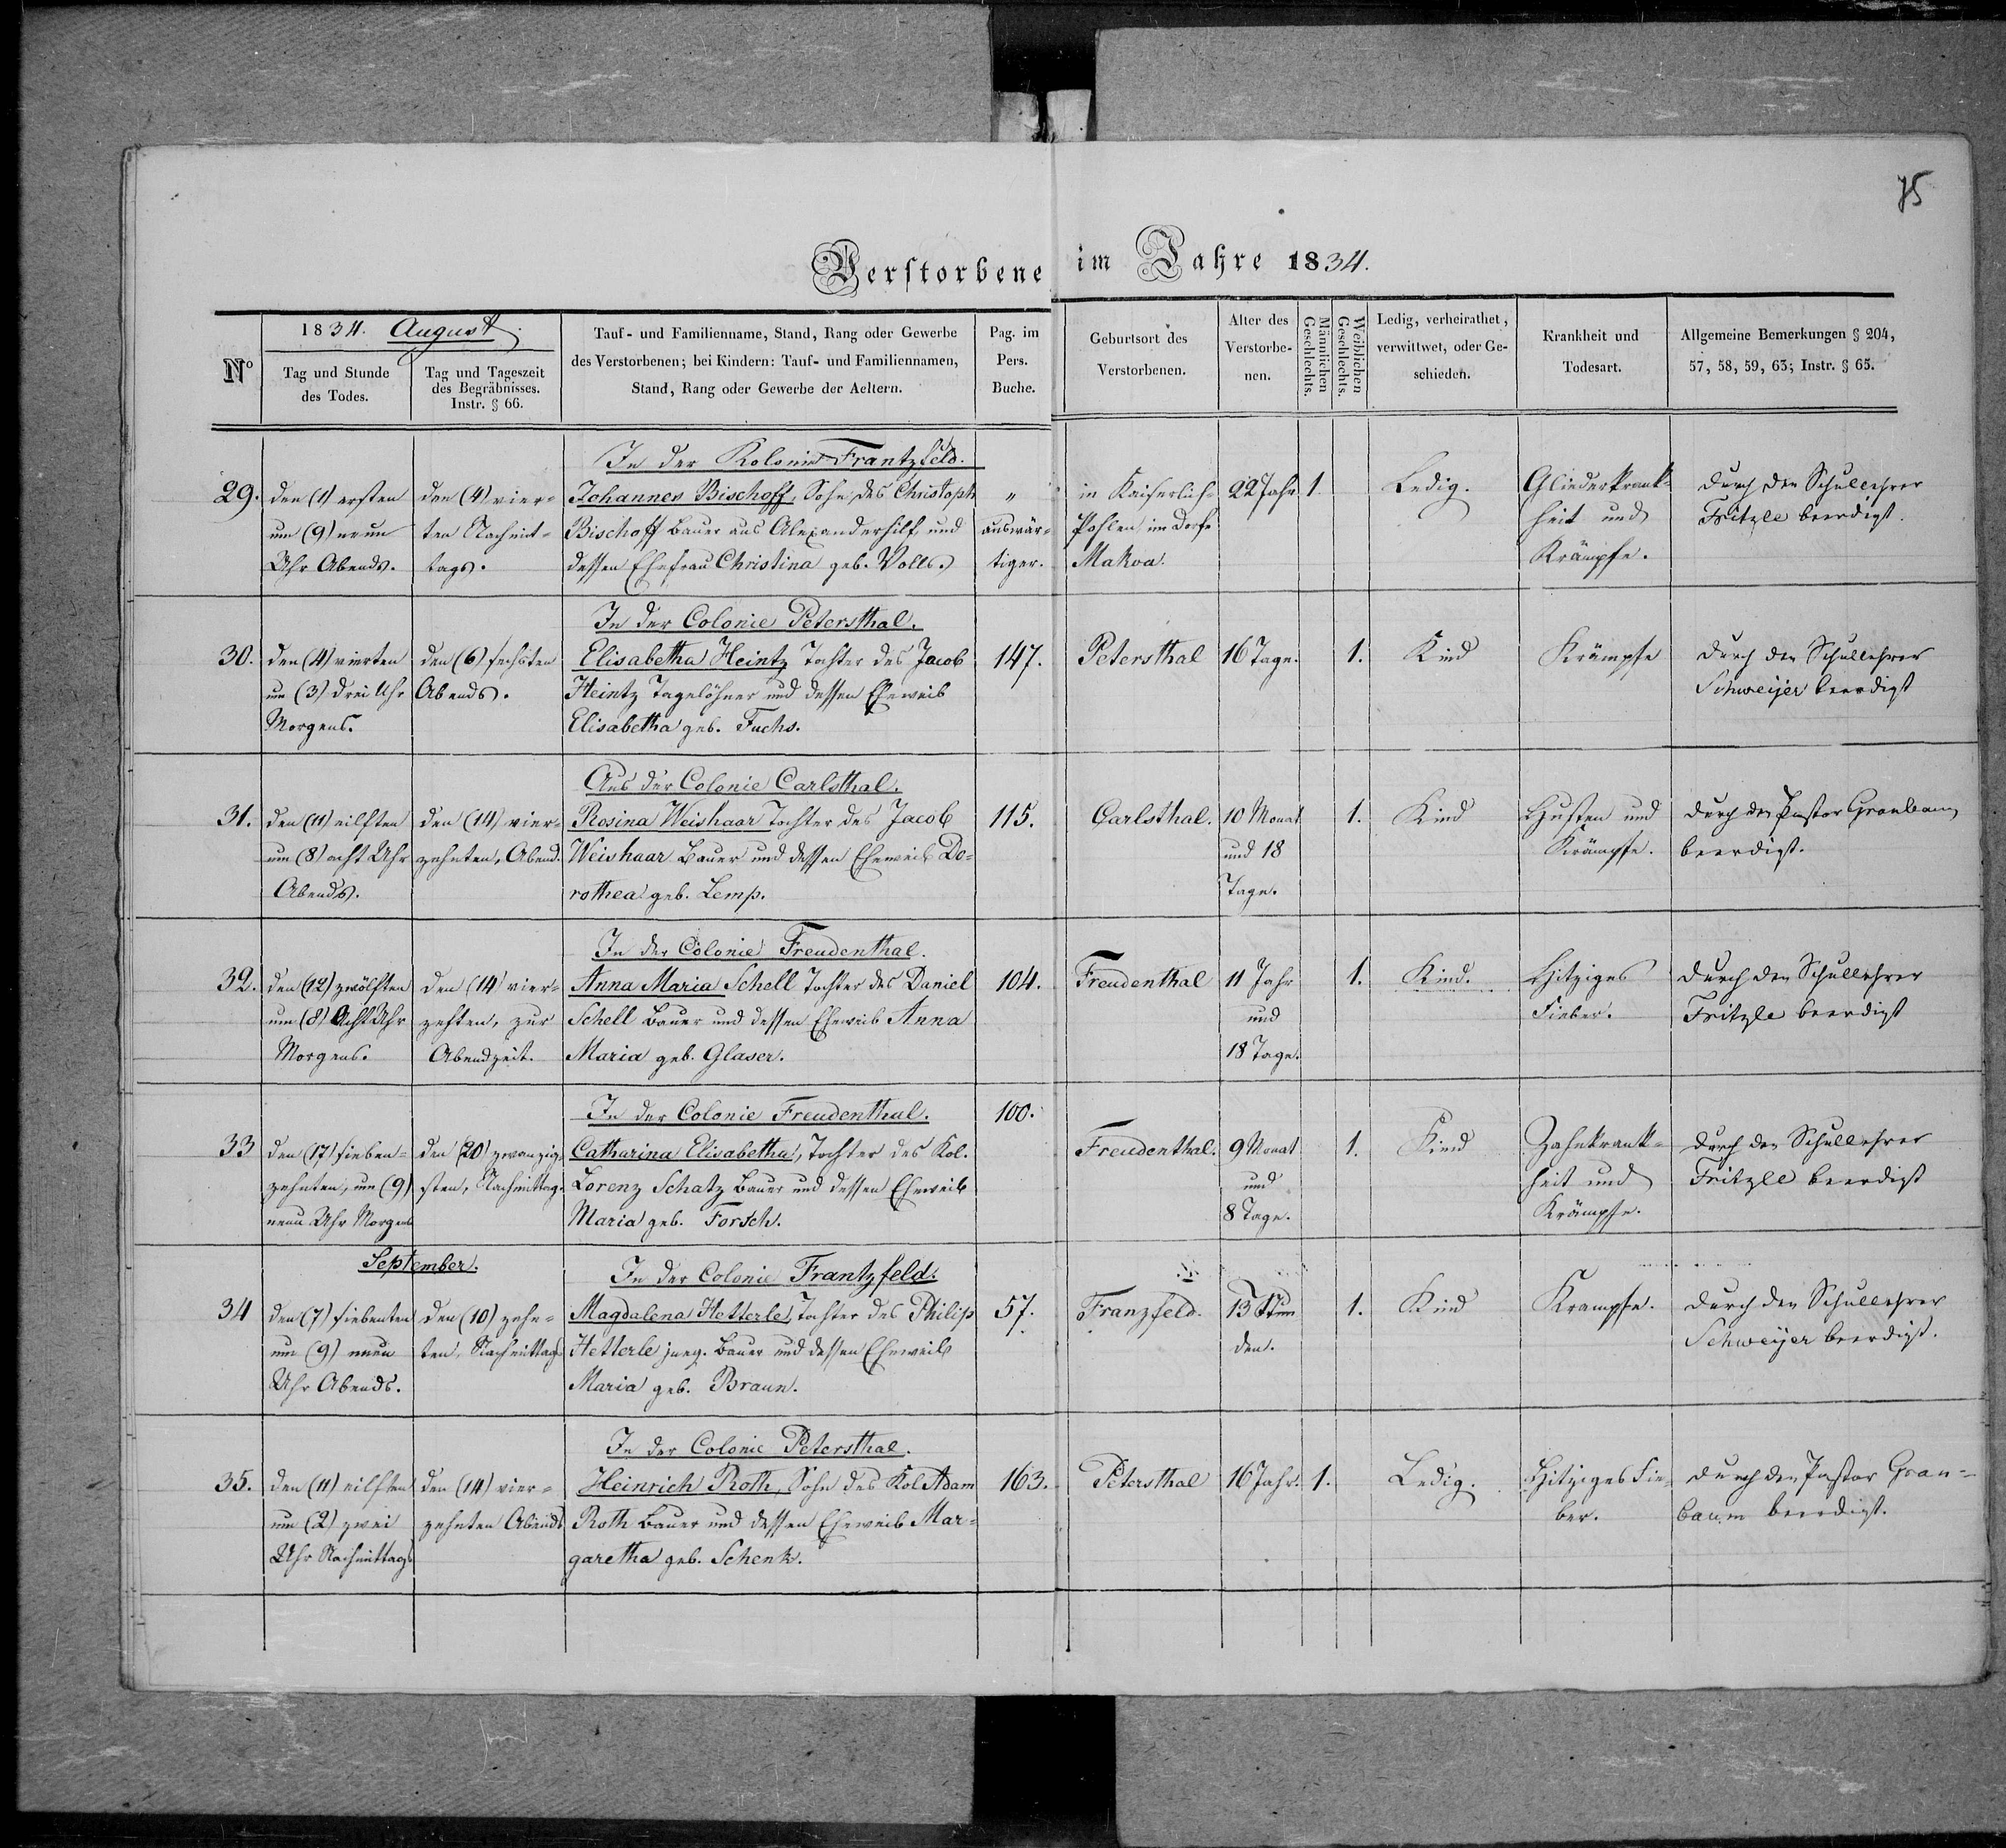 75
Verstorbene im Jahre 1834.
Nº
1834. August.
Tag und Stunde des Todes.
Tag und Tageszeit des Begräbnisses. Instr. § 66.
Tauf- und Familienname, Stand, Rang oder Gewerbe
des Verstorbenen; bei Kindern: Tauf- und Familiennamen,
Stand, Rang oder Gewerbe der Aeltern.
Pag. im Pers. Buche.
Geburtsort des Verstorbenen.
Alter des Verstorbe- nen.
Männlichen Geschlechts.
Weiblichen Geschlechts.
Ledig, verheirathet, verwittwet, oder Ge- schieden.
Krankheit und Todesart.
Allgemeine Bemerkungen § 204, 57, 58, 59, 63; Instr. § 65.
In der Kolonie Frantzfeld.
29. den (1) ersten den (4) vier- Johannes Bischoff, Sohn des Christoph " in Kaiserlich- 22 Jahr 1. Ledig. Gliederkrank- durch den Schullehrer
um (9) neun ten Nachmit- Bischoff Bauer aus Alexanderhilf und auswär- Pohlen, im Dorfe heit und Fritzle beerdigt.
Uhr Abends. tags. dessen Ehefrau Christina geb. Volls. tiger. Makva. Krämpfe.
In der Colonie Petersthal.
30. den (4) vierten den (6) sechsten Elisabetha Heintz Tochter des Jacob 147. Petersthal 16 Tage. 1. Kind Krämpfe durch den Schullehrer
um (3) drei Uhr Abends. Heintz Tagelöhner und dessen Eheweib Schweijer beerdigt
Morgens. Elisabetha geb. Fuchs.
Aus der Colonie Carlsthal.
31. den (11) eilften den (14) vier- Rosina Weishaar Tochter des Jacob 115. Carlsthal. 10 Monat 1. Kind Husten und durch den Pastor Granbaum
um (8) acht Uhr zehnten, Abend. Weishaar Bauer und dessen Eheweib Do- und 18 Krämpfe. beerdigt.
Abends. rothea geb. Lemp. Tage.
In der Colonie Freudenthal.
32. den (12) zwölften den (14) vier- Anna Maria Schell Tochter des Daniel 104. Freudenthal 11 Jahr 1. Kind. Hitziges durch den Schullehrer
um (8) Acht Uhr zehten, zur Schell Bauer und dessen Eheweib Anna und Fieber. Fritzle beerdigt
Morgens. Abendzeit. Maria geb. Glaser. 18 Tage.
In der Colonie Freudenthal. 100.
33 den (17) sieben- den (20) zwanzig- Catharina Elisabetha, Tochter des Kol. Freudenthal. 9 Monat 1. Kind Zahnkrank- durch den Schullehrer
zehnten, um (9) sten, Nachmittag. Lorenz Schatz Bauer und dessen Eheweib und heit und Fritzle beerdigt
neun Uhr Morgens Maria geb. Forsch. 8 Tage. Krämpfe.
September. In der Colonie Frantzfeld.
34 den (7) siebenten den (10) zehn- Magdalena Hetterle, Tochter des Philip 57. Franzfeld. 13 Stun 1. Kind Krampfe. durch den Schullehrer
um (9) neun ten, Nachmittags Hetterle jung. Bauer und dessen Eheweib den. Schweijer beerdigt.
Uhr Abends. Maria geb. Braun.
In der Colonie Petersthal.
35. den (11) eilften den (14) vier- Heinrich Roth, Sohn des Kol Adam 163. Petersthal 16 Jahr. 1. Ledig. Hitziges Fie- durch den Pastor Gran-
um (2) zwei zehnten Abends Roth Bauer und dessen Eheweib Mar- ber. baum beerdigt.
Uhr Nachmittags garetha geb. Schenk.